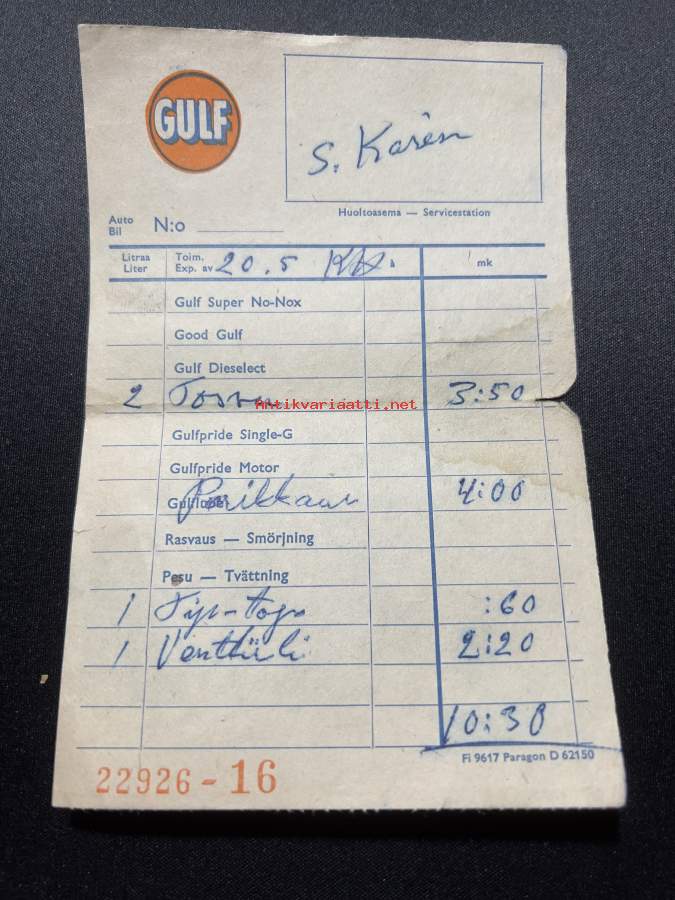 GULF
S. Karén
Huoltoasema — Servicestation
Auto
Bil N:o
Litraa
Liter
Toim.
Exp. av 20.5 à mk
Gulf Super No-Nox
Good Gulf
Gulf Dieselect
2 3:50
Antikvariaatti.net
Gulfpride Single-G
Gulfpride Motor
Paikkaus 4:00
Rasvaus — Smörjning
Pesu — Tvättning
1 Tip-top :60
1 Venttiili 2:20
10:30
Fi 9617 Paragon D 62150
22926 - 16